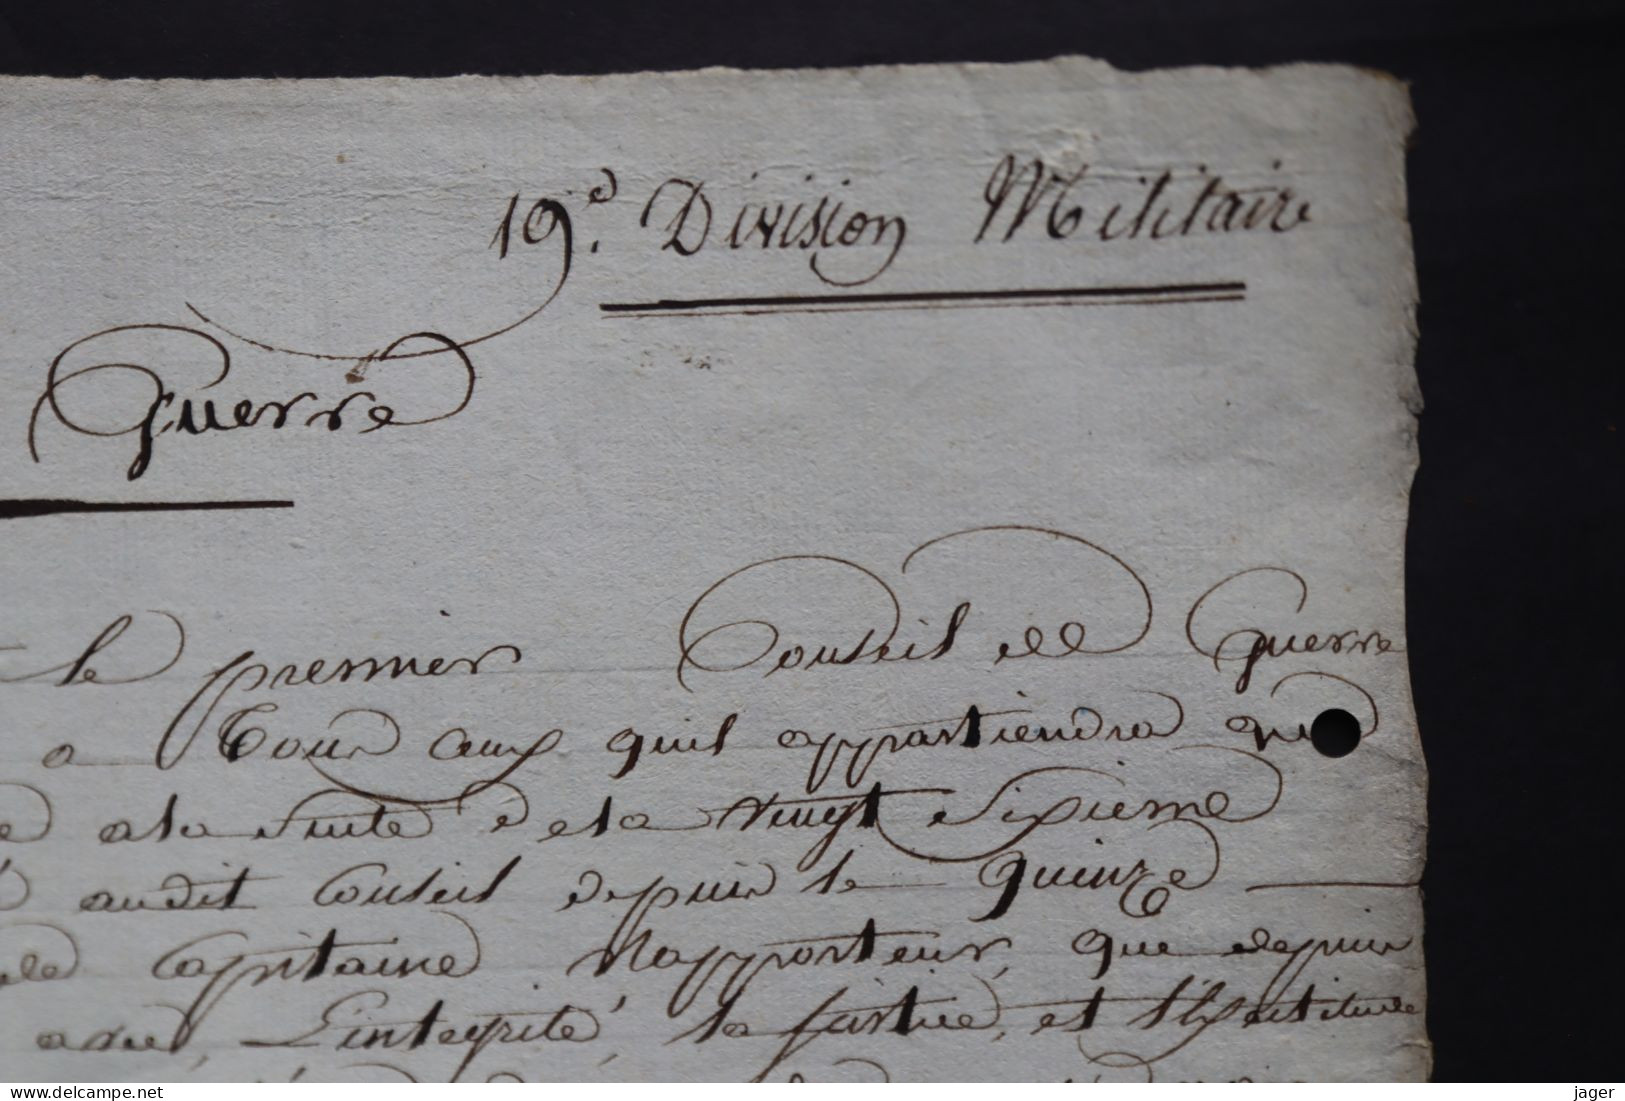 19e. Division Militaire
Guerre
le premier Conseil de Guerre
a Tous ceux quil appartiendra que
a la Suite de la vingt Sixieme
audit Conseil depuis le quinze
de Capitaine Rapporteur, que depuis
avec, L'integrité, la justice, et l'Exactitude
www.delcampe.net
jager